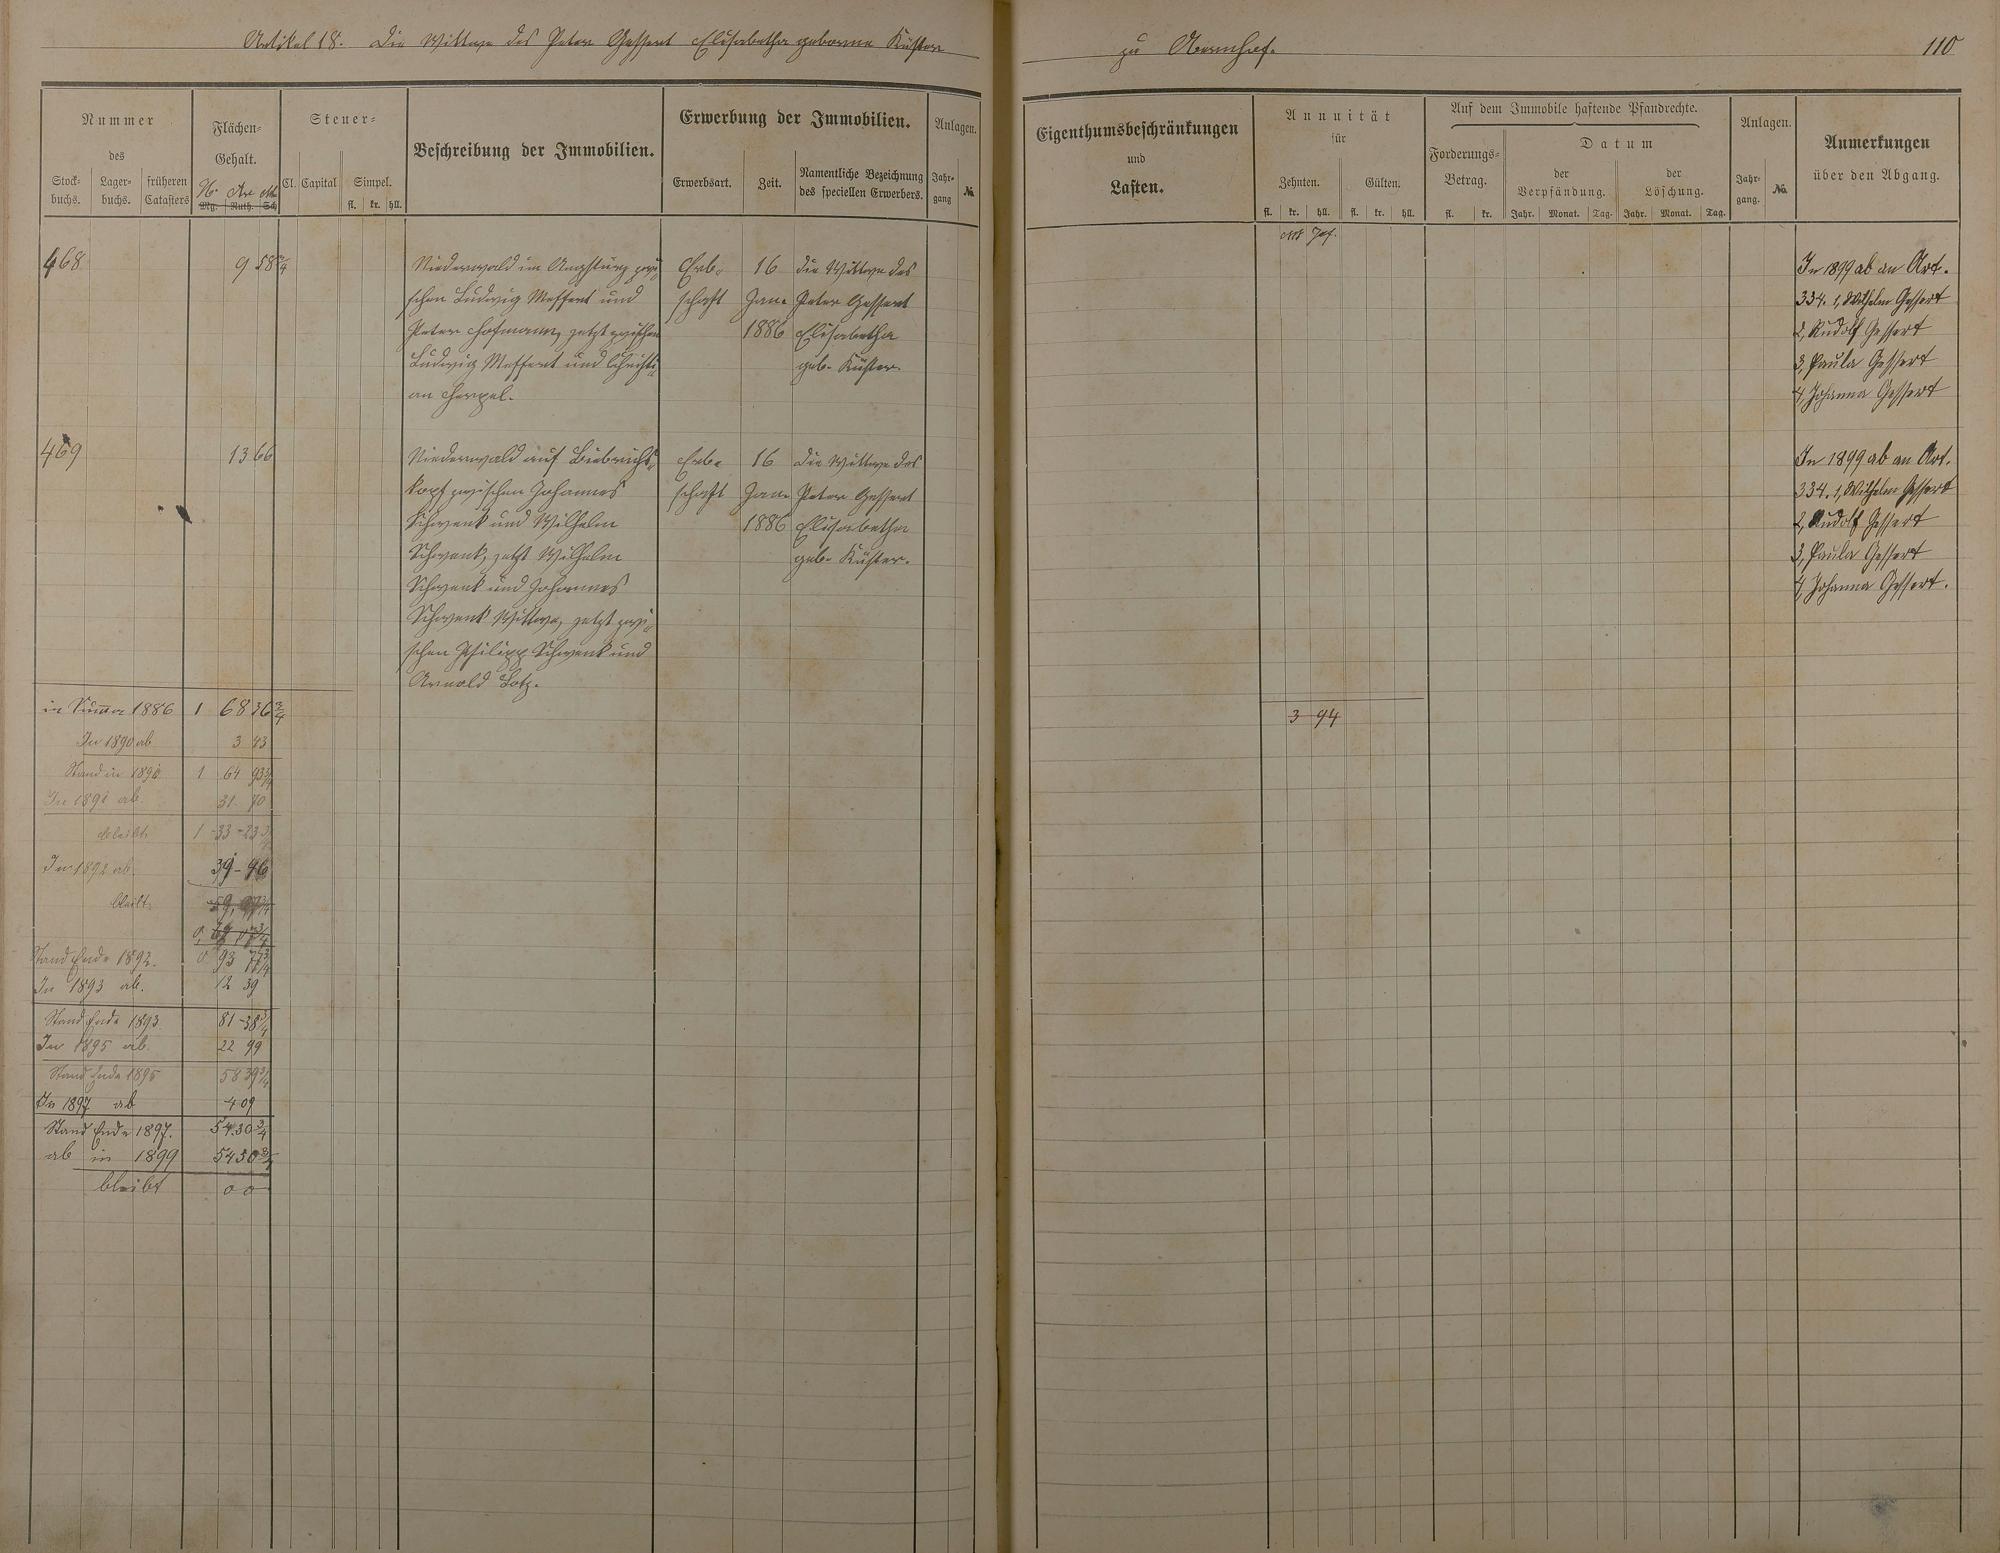 Artikel 18. Die Wittwe des Peter Gessert Elisabetha geborne Küster
zu Obernhof.
110
Nummer
des
Stock-
buchs.
Lager-
buchs.
früheren
Catasters
Flächen-
Gehalt.
H. Are
Mg. Ruth. Sch
Steuer-
Cl. Capital Simpel.
fl. kr. hll.
Beschreibung der Immobilien.
Erwerbung der Immobilien.
Erwerbsart. Zeit.
Namentliche Bezeichnung
des speciellen Erwerbers.
Anlagen.
Jahr-
gang
No.
Eigenthumsbeschränkungen
und
Lasten.
Annuität
für
Zehnten. Gülten.
fl. kr. hll. fl. kr. hll.
Auf dem Immobile haftende Pfandrechte.
Forderungs-
Betrag.
fl. kr.
Datum
der
Verpfändung.
der
Löschung.
Jahr. Monat. Tag. Jahr. Monat. Tag.
Anlagen.
Jahr-
gang.
No.
Anmerkungen
über den Abgang.
468 9 58 3/4
Niederwald im zwi-
schen Ludwig Meffert und
Peter Hofmann, jetzt zwischen
Ludwig Meffert und Christi-
an Herpel.
Erb-
schaft
16
Jan.
1886
die Wittwe des
Peter Gessert
Elisabetha
geb. Küster.
In 1899 ab an Art.
334. 1, Wilhelm Gessert
2, Rudolf Gessert
3, Paula Gessert
4, Johanna Gessert
469 13 66
Niederwald auf Biebrichs-
kopf zwischen Johannes
Schwenk und Wilhelm
Schwenk, jetzt Wilhelm
Schwenk und Johannes
Schwenk Wittwe, jetzt zwi-
schen Philipp Schwenk und
Arnold Lotz.
Erb-
schaft
16
Jan.
1886
die Wittwe des
Peter Gessert
Elisabetha
geb. Küster.
In 1899 ab an Art.
334. 1, Wilhelm Gessert
2, Rudolf Gessert
3, Paula Gessert
4, Johanna Gessert.
in Summa 1886 1 68 36 3/4
3 94
In 1890 ab 3 43
Stand in 1890 1 64 93 3/4
In 1891 ab. 31 70
bleibt 1 - 33 - 23 3/4
In 1892 ab. 39 - 46
bleibt.
Stand Ende 1892. 0 93 77 3/4
In 1893 ab. 12 39
Stand Ende 1893 81 - 38 3/4
In 1895 ab. 22 99
Stand Ende 1895 58 39 3/4
In 1897 ab 4 09
Stand Ende 1897. 54.30 3/4
ab in 1899 54 30 3/4
bleibt 0 0